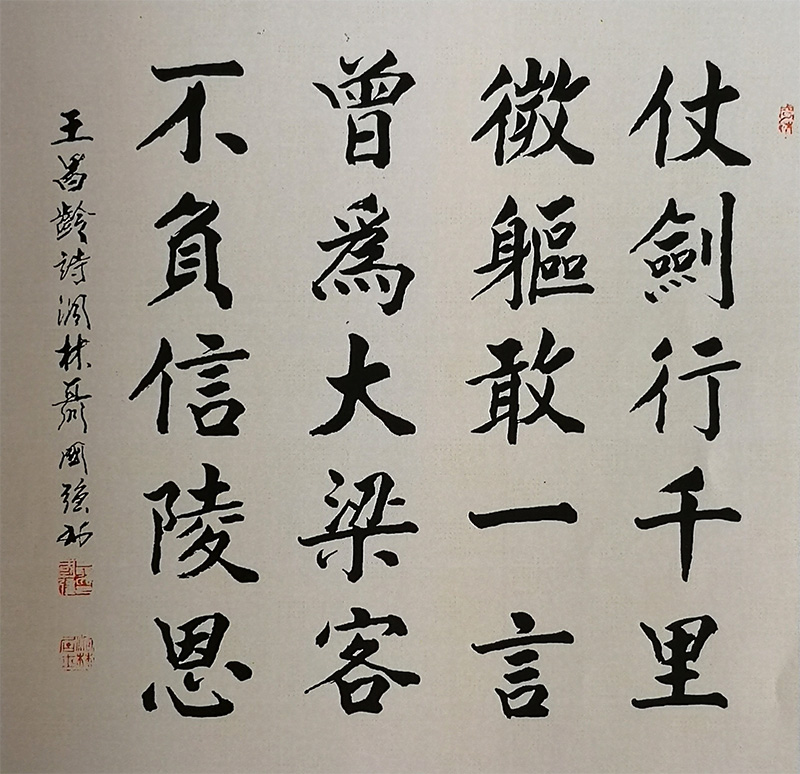 仗劍行千里
微軀敢一言
曾為大梁客
不負信陵恩
王昌齡詩澗林聶國強書